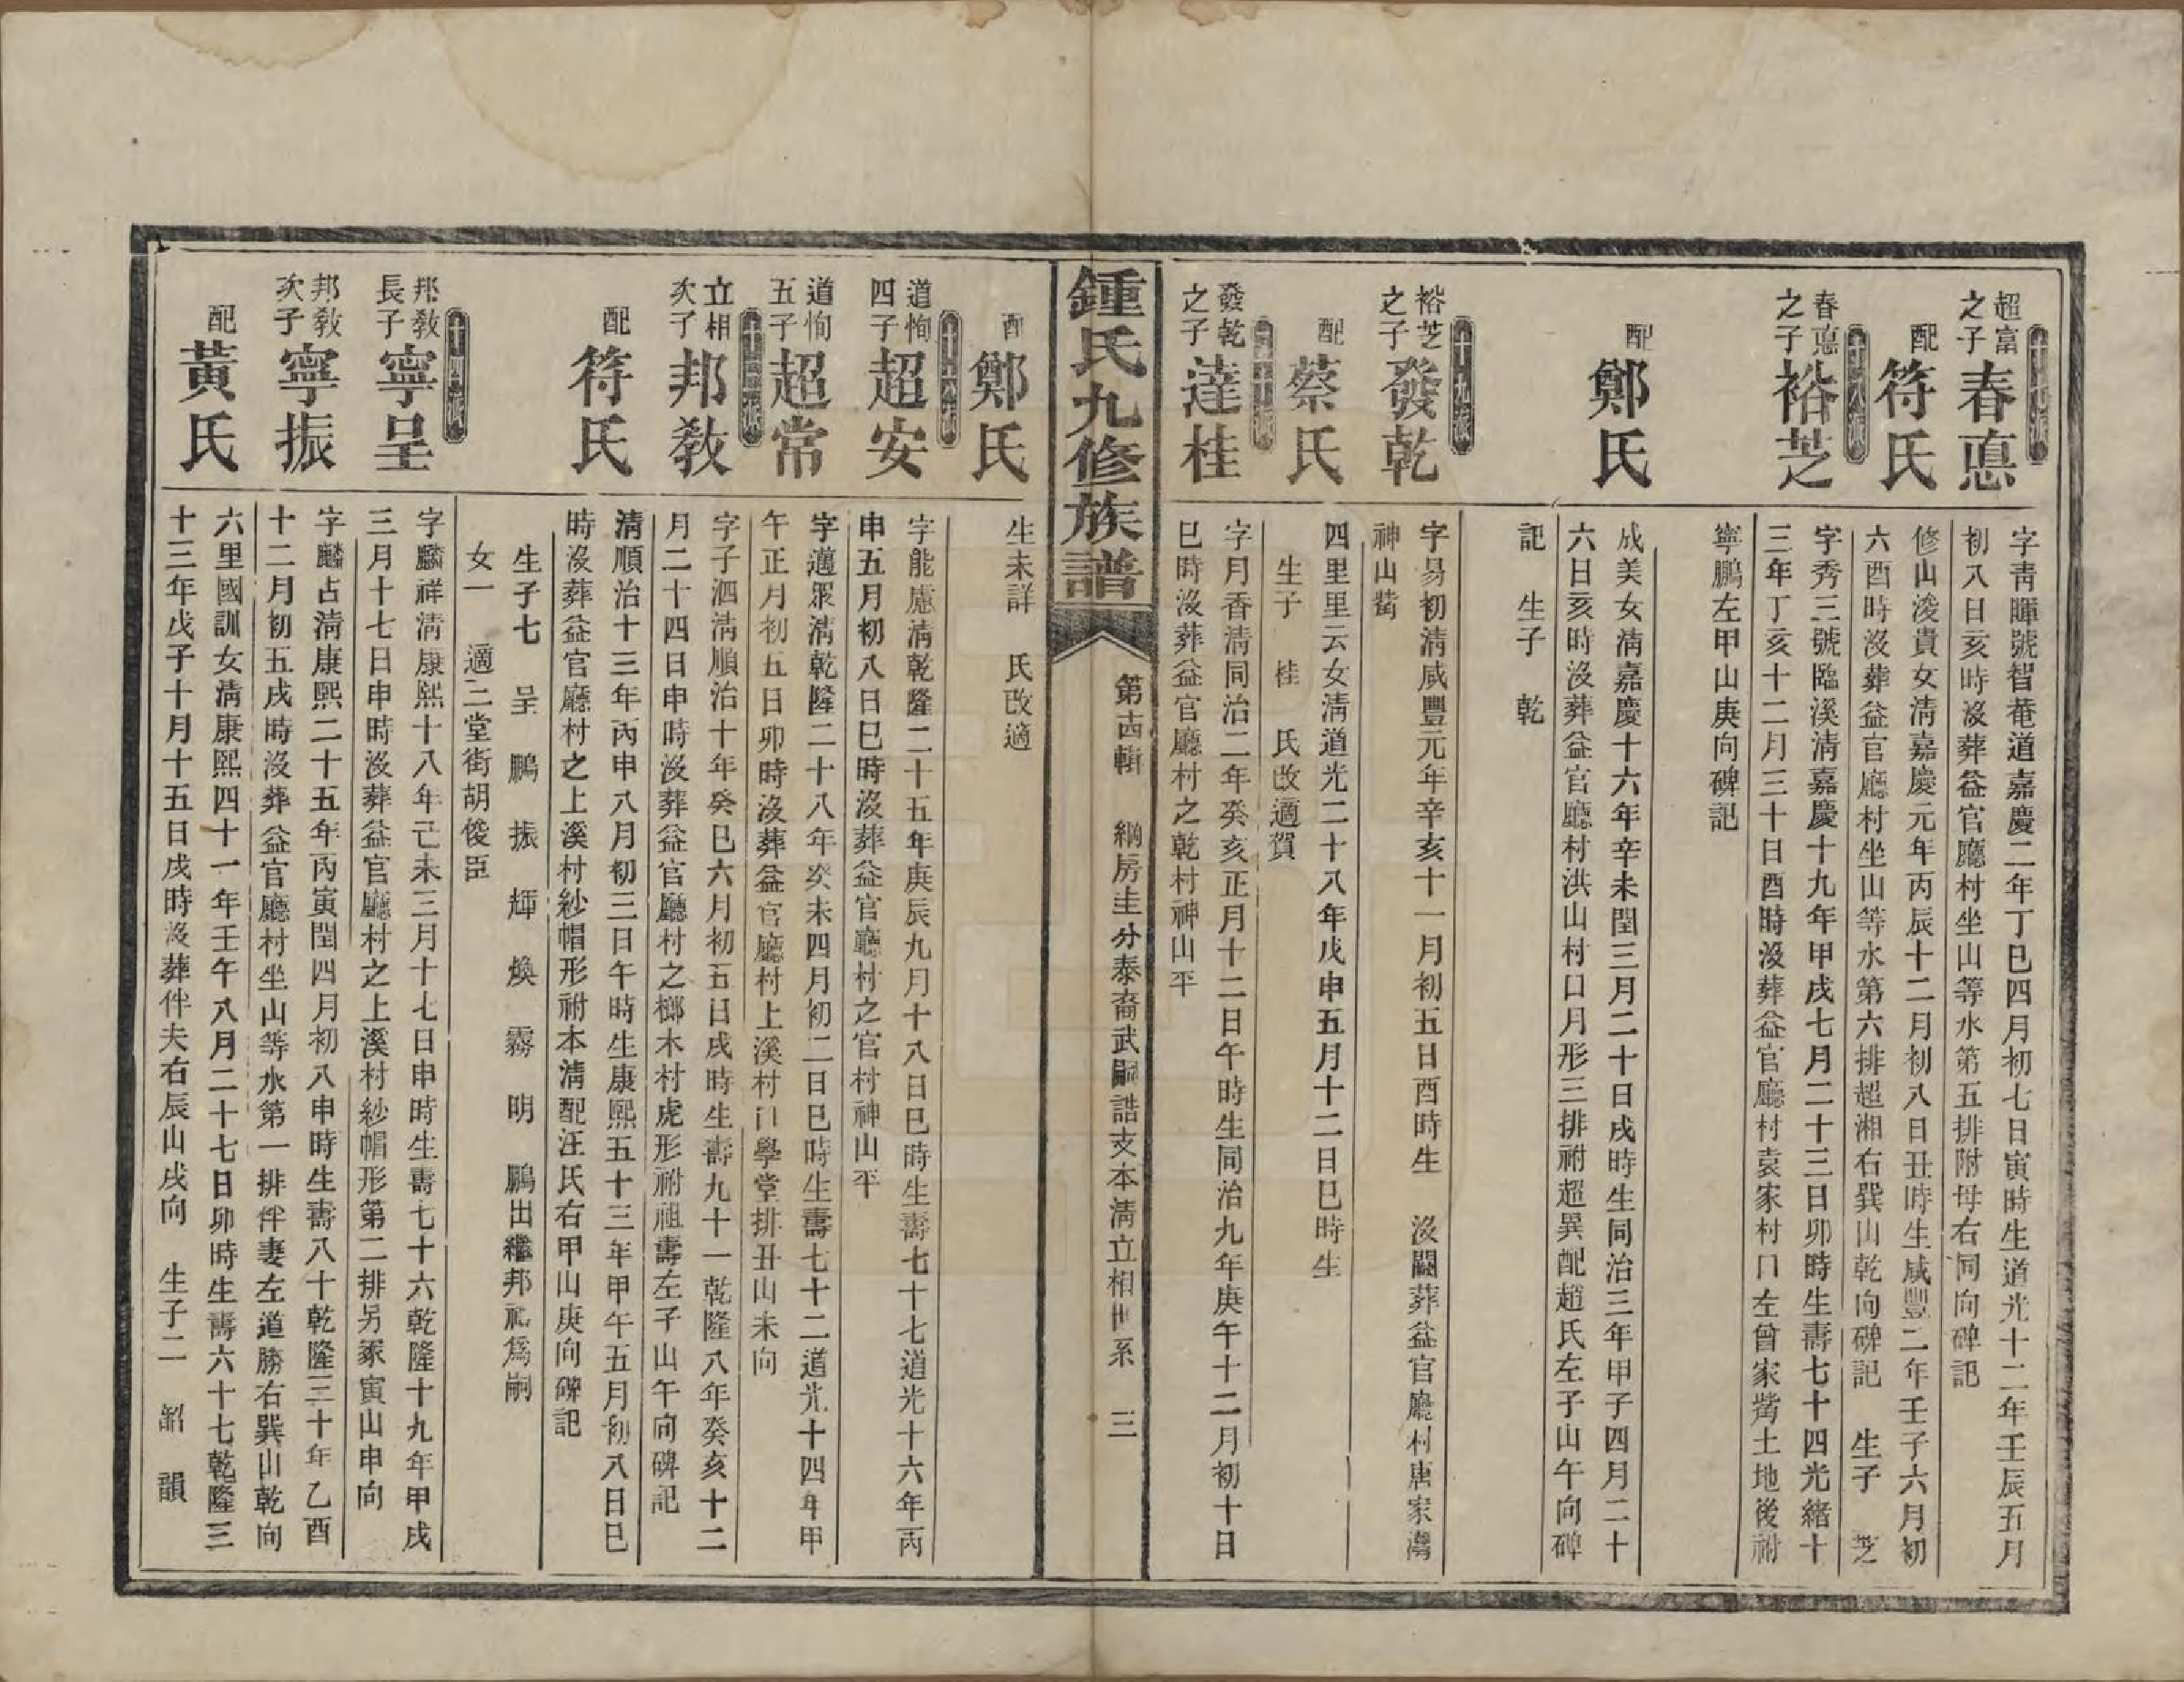 十七派
超富之子 春悳
字靑暉號智菴道嘉慶二年丁巳四月初七日寅時生道光十二年壬辰五月
初八日亥時沒葬益官廳村坐山等水第五排附母右同向碑記
配 符氏
修山浚貴女淸嘉慶元年丙辰十二月初八日丑時生咸豐二年壬子六月初
六酉時沒葬益官廳村坐山等水第六排超湘右巽山乾向碑記 生子 芝
十八派
春悳之子 裕芝
字秀三號臨溪淸嘉慶十九年甲戌七月二十三日卯時生壽七十四光緒十
三年丁亥十二月三十日酉時沒葬益官廳村袁家村口左曾家嘴土地後祔
寧鵬左甲山庚向碑記
配 鄭氏
成美女淸嘉慶十六年辛未閏三月二十日戌時生同治三年甲子四月二十
六日亥時沒葬益官廳村洪山村口月形三排祔超異配趙氏左子山午向碑
記 生子 乾
十九派
裕芝之子 發乾
字易初淸咸豐元年辛亥十一月初五日酉時生 沒闕葬益官廳村唐家灣
神山嘴
配 蔡氏
四里里云女淸道光二十八年戊申五月十二日巳時生
生子 桂 氏改適賀
二十派
發乾之子 達桂
字月香淸同治二年癸亥正月十二日午時生同治九年庚午十二月初十日
巳時沒葬益官廳村之乾村神山平
鍾氏九修族譜
第十四輯 綱房圭分泰裔武嗣誥支本淸立相世系 三
配 鄭氏
生未詳 氏改適
十六派
道恂四子 超安
字能慮淸乾隆二十五年庚辰九月十八日巳時生壽七十七道光十六年丙
申五月初八日巳時沒葬益官廳村之官村神山平
道恂五子 超常
字邁眾淸乾隆二十八年癸未四月初二日巳時生壽七十二道光十四年甲
午正月初五日卯時沒葬益官廳村上溪村口學堂排丑山未向
十三派
立相次子 邦教
字子泗淸順治十年癸巳六月初五日戌時生壽九十一乾隆八年癸亥十二
月二十四日申時沒葬益官廳村之榔木村虎形祔祖壽左子山午向碑記
配 符氏
淸順治十三年丙申八月初三日午時生康熙五十三年甲午五月初八日巳
時沒葬益官廳村之上溪村紗帽形祔本淸配汪氏右甲山庚向碑記
生子七 呈 鵬 振 輝 煥 霧 明 鵬出繼邦祉爲嗣
女一 適三堂街胡俊臣
十四派
邦教長子 寧呈
字麟祥淸康熙十八年己未三月十七日申時生壽七十六乾隆十九年甲戌
三月十七日申時沒葬益官廳村之上溪村紗帽形第二排另豖寅山申向
邦教次子 寧振
字麟占淸康熙二十五年丙寅閏四月初八申時生壽八十乾隆三十年乙酉
十二月初五戌時沒葬益官廳村坐山等水第一排伴妻左道勝右巽山乾向
配 黃氏
六里國訓女淸康熙四十一年壬午八月二十七日卯時生壽六十七乾隆三
十三年戊子十月十五日戌時沒葬伴夫右辰山戌向 生子二 韶 韻